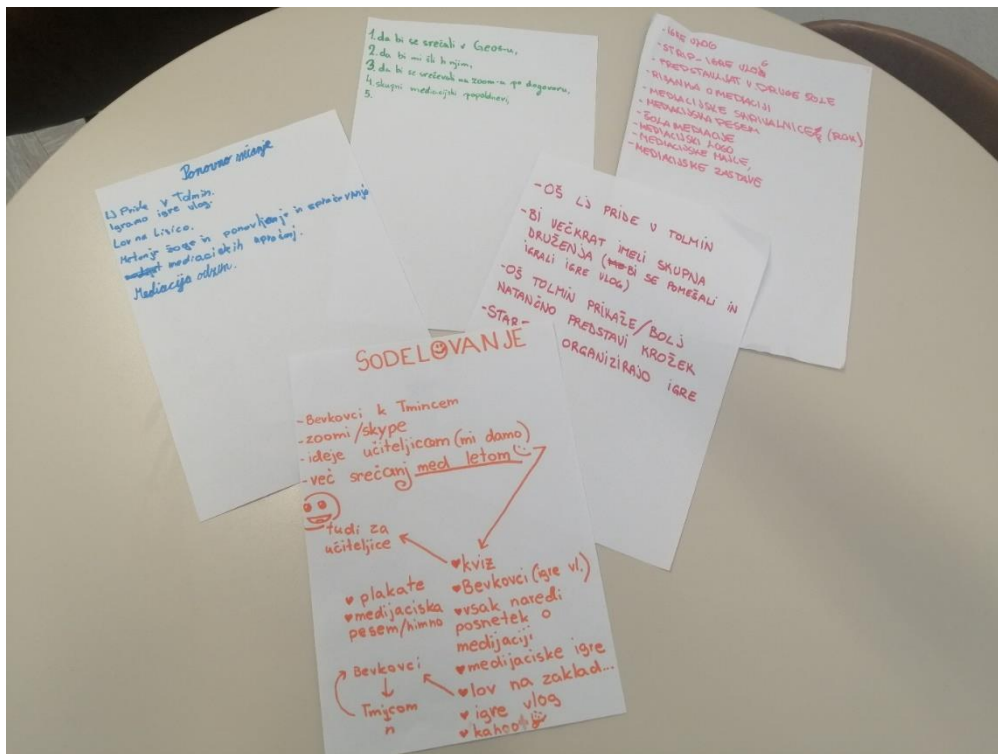 Ponovno snidenje
LJ Pride v Tolmin.
Igramo igre vlog.
Lov na Lisico.
žoge in ponavljanje in
mediaciskih vprašanj.
Mediacija odzun.
1. da bi se srečali v Geosu,
2. da bi mi šli k njim,
3. da bi se srečevali na zoom-u po dogovoru,
4. skupni mediacijski popoldnevi
5.
- IGRE VLOG
- STRIP - IGRE VLOG
- PREDSTAVLJAT V DRUGE ŠOLE
- RISANKA O MEDIACIJI
- MEDIACIJSKE SKRIVALNICE (ROK)
- MEDIACIJSKA PESEM
- ŠOLA MEDIACIJE
- MEDIACIJSKI LOGO
- MEDIACIJSKE MAJCE,
- MEDIACIJSKE ZASTAVE
- OŠ LJ PRIDE V TOLMIN
- BI VEČKRAT IMELI SKUPNA
DRUŽENJA (BI SE POMEŠALI IN
IGRALI IGRE VLOG)
- OŠ TOLMIN PRIKAŽE/BOLJ
NATANČNO PREDSTAVI KROŽEK
- STAR-
ORGANIZIRAJO IGRE
SODELOVANJE
- Bevkovci k Tmincem
- zoomi/skype
- ideje učiteljicam (mi damo)
- več srečanj med letom
tudi za
učiteljice
♥ kviz
♥ Bevkovci (igre vl.)
♥ vsak naredi
posnetek o
medijaciji
♥ medijaciske igre
♥ lov na zaklad...
♥ igre vlog
♥ kahoot
♥ plakate
♥ medijaciska
pesem/himna
Bevkovci
Tmijcom
n